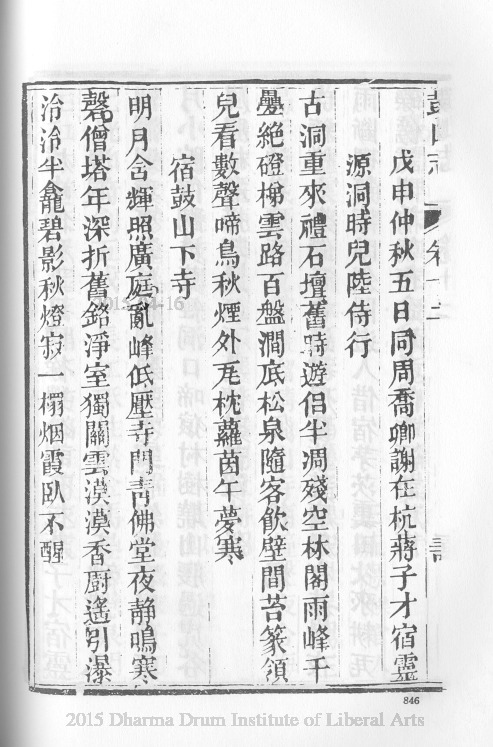 鼓山志 卷十二
戊申仲秋五日同周喬卿謝在杭蔣子才宿靈
源洞時兒陸侍行
古洞重來禮石壇舊時遊侶半凋殘空林閣雨峰千
疊絕磴梯雲路百盤澗底松泉隨客飲壁間苔篆領
兒看數聲啼鳥秋煙外瓦枕蘿茵午夢寒
宿鼓山下寺
明月含輝照廣庭亂峰低壓寺門青佛堂夜静鳴寒
磬僧塔年深折舊銘淨室獨關雲漠漠香厨遙引瀑
泠泠半龕碧影秋燈寂一榻烟霞臥不醒
846
2015 Dharma Drum Institute of Liberal Arts